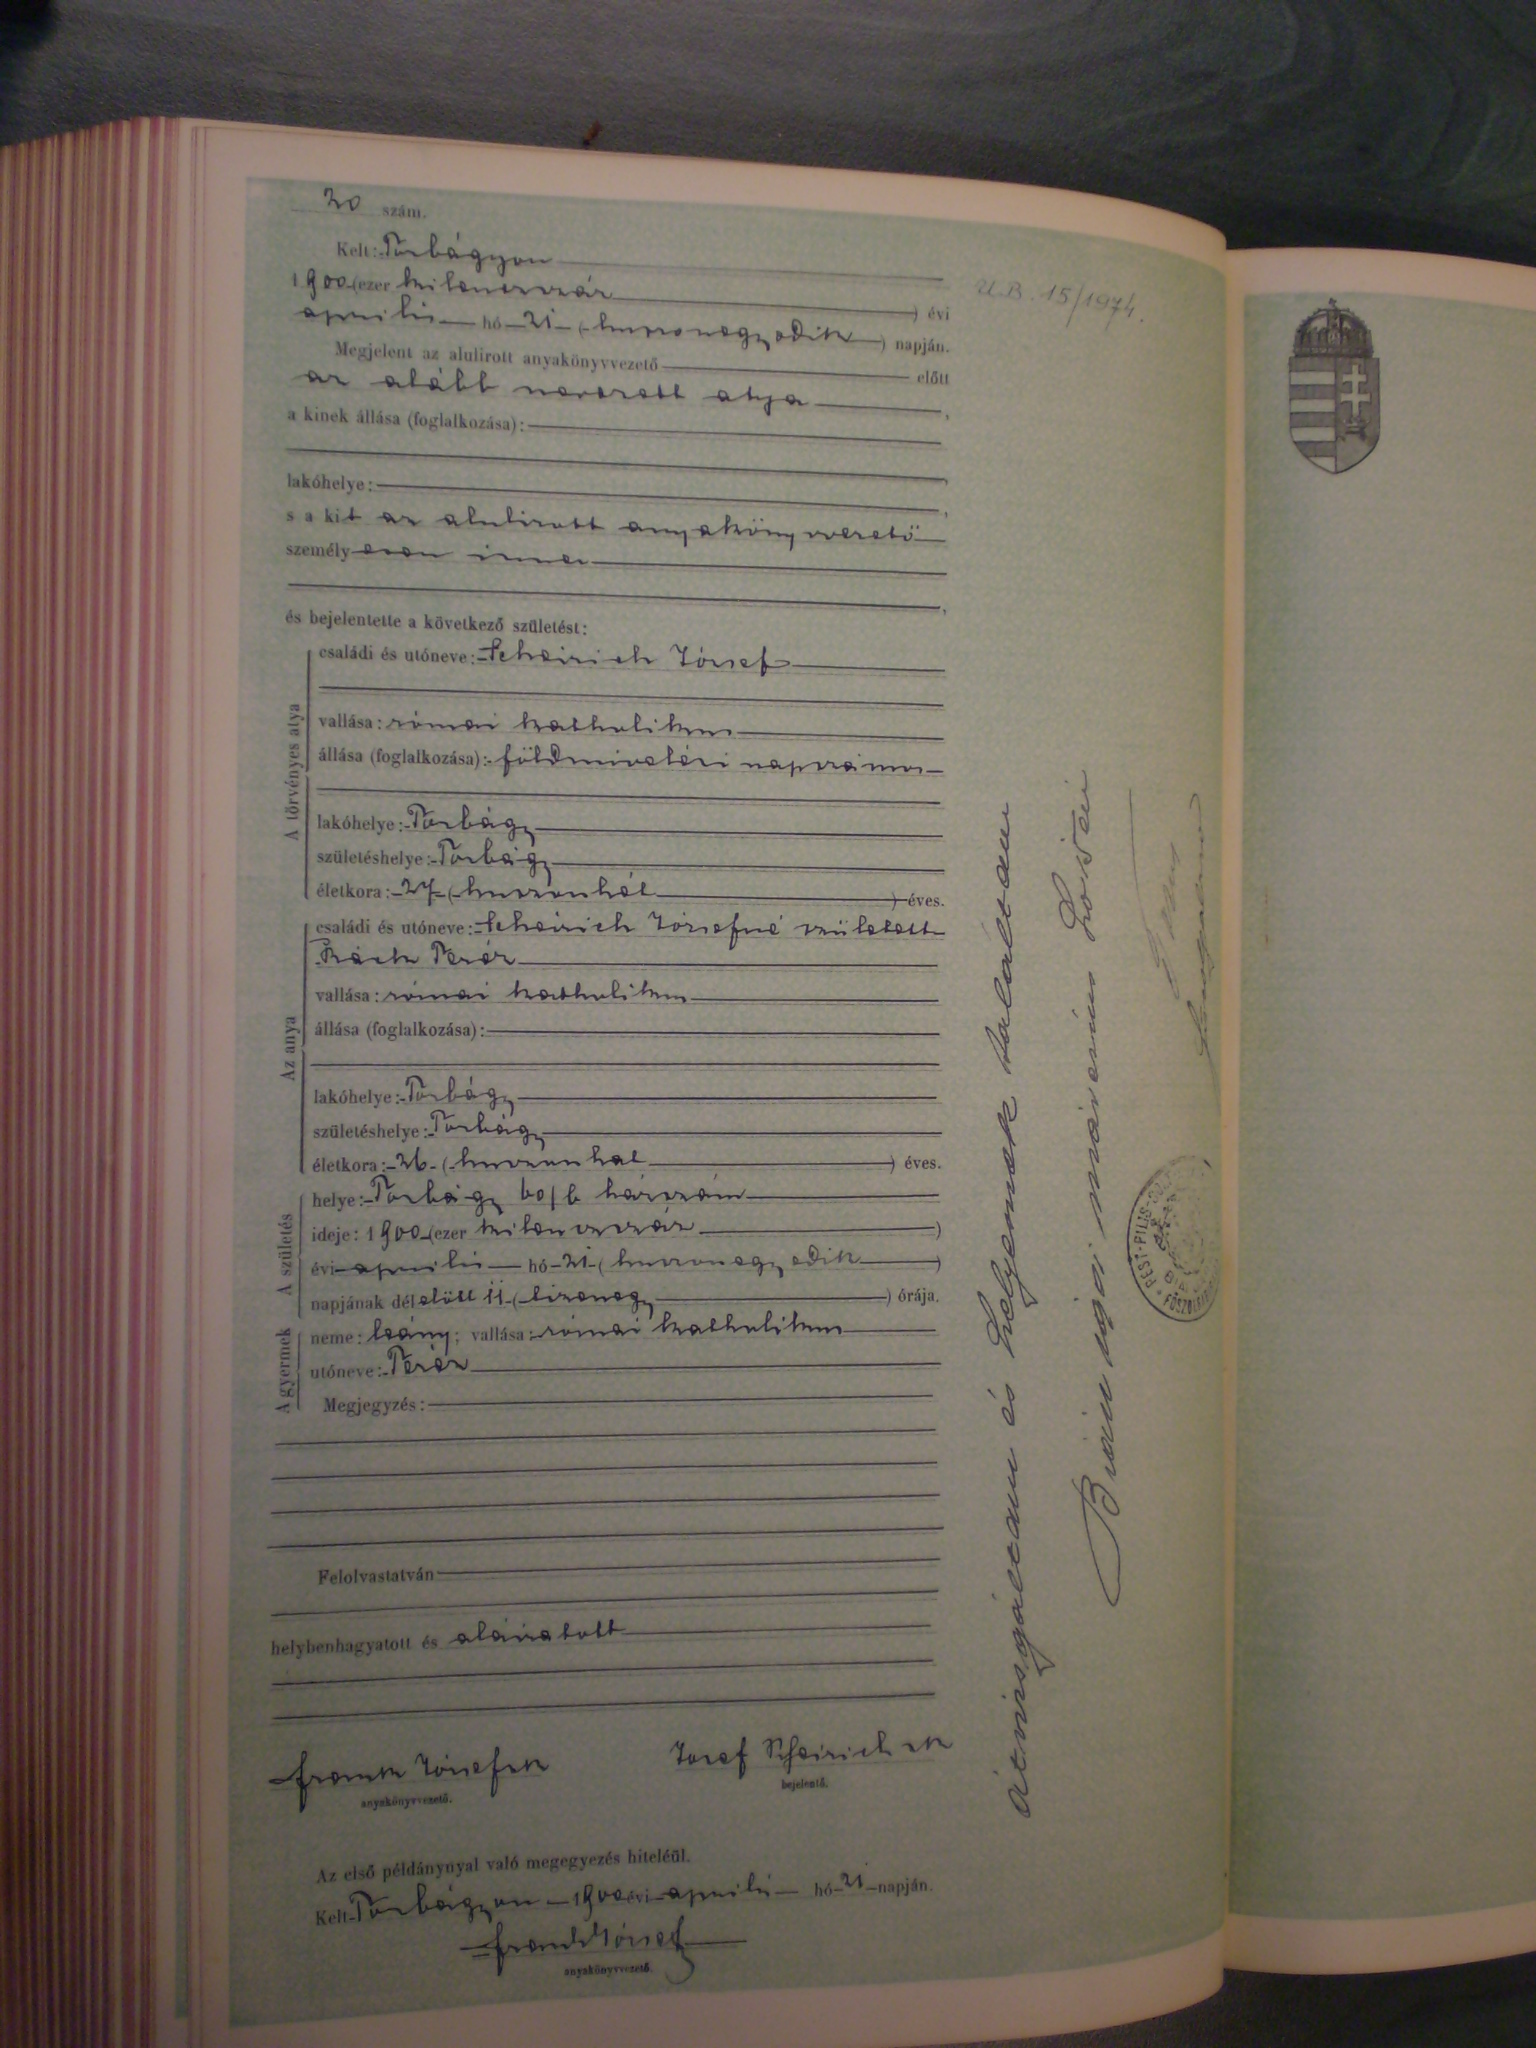 20 szám.
Kelt: Torbágyon
1900 (ezer kilenczszáz) évi
április hó 21 (huszonegyedik) napján.
Megjelent az alulirott anyakönyvvezető előtt
az alább nevezett atya,
a kinek állása (foglalkozása):
lakóhelye:
s a kit az alulirott anyakönyvvezető
személyesen ismer
és bejelentette a következő születést:
A törvényes atya
családi és utóneve: Scheirich József
vallása: római katholikus
állása (foglalkozása): földmivelési napszámos
lakóhelye: Torbágy
születéshelye: Torbágy
életkora: 27 (huszonhét) éves.
Az anya
családi és utóneve: Scheirich Józsefné született
Teréz
vallása: római katholikus
állása (foglalkozása):
lakóhelye: Torbágy
születéshelye: Torbágy
életkora: 26 (huszonhat) éves.
A születés
helye: Torbágy 60/b házszám
ideje: 1900 (ezer kilenczszáz)
évi április hó 21 (huszonegyedik)
napjának délelőtt 11 (tizenegy) órája.
A gyermek
neme: leány; vallása: római katholikus
utóneve: Teréz
Megjegyzés:
Felolvastatván
helybenhagyatott és aláiratott
Frank József sk
anyakönyvvezető.
Josef Scheirich sk
bejelentő.
Az első példánynyal való megegyezés hiteléül.
Kelt Torbágyon 1900 évi április hó 21 napján.
Frank József
anyakönyvvezető.
U.B. 15/1974.
Átvizsgáltam és helyesnek találtam
Biai
PEST-PILIS-SOLT